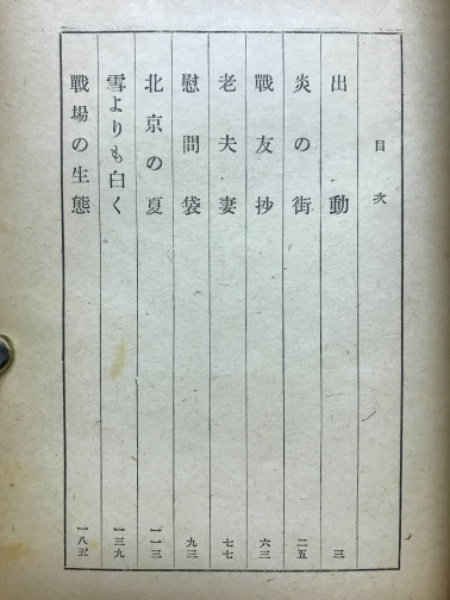 目次
出動 三
炎の街 二五
戰友抄 六三
老夫妻 七七
慰問袋 九三
北京の夏 一一三
雪よりも白く 一三九
戰場の生態 一八五